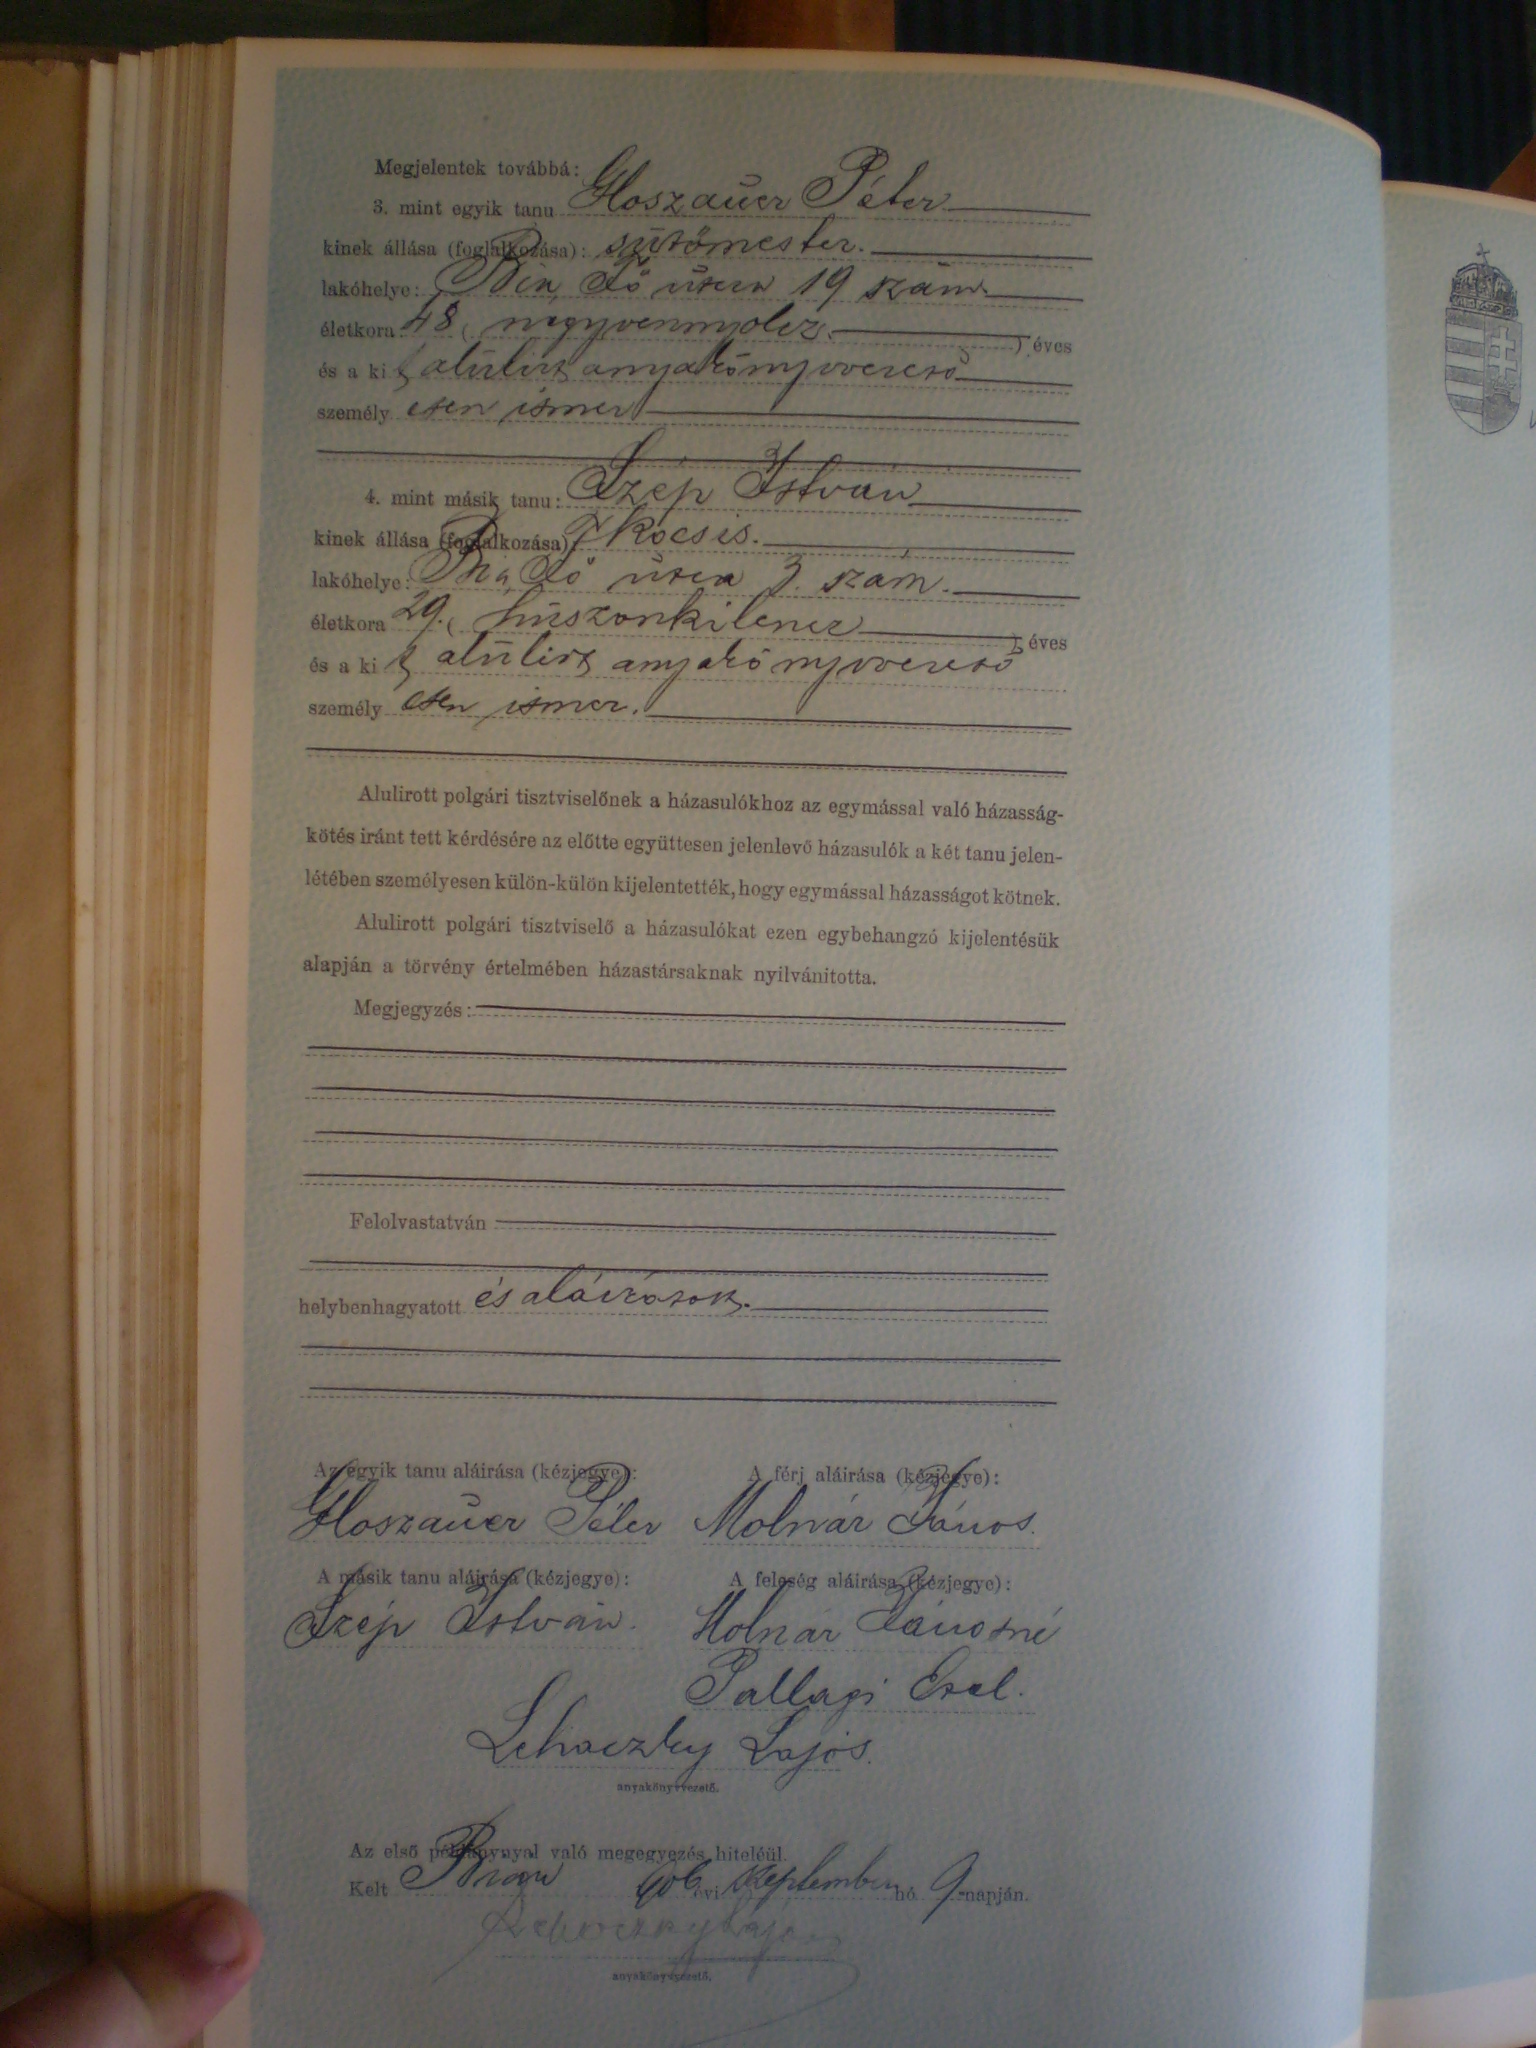 Megjelentek továbbá:
3. mint egyik tanu Gloszauer Péter
kinek állása (foglalkozása): sütőmester.
lakóhelye: Bia, Fő utca 19 szám
életkora 48 ( negyvennyolcz ) éves
és a ki t alúlirt anyakönyvvezető
személy esen ismer
4. mint másik tanu: Szép István
kinek állása (foglalkozása) kocsis.
lakóhelye: Bia, Fő utca 3. szám.
életkora 29. ( húszonkilencz ) éves
és a ki t alúlirt anyakönyvvezető
személy esen ismer.
Alulirott polgári tisztviselőnek a házasulókhoz az egymással való házasság-
kötés iránt tett kérdésére az előtte együttesen jelenlevő házasulók a két tanu jelen-
létében személyesen külön-külön kijelentették, hogy egymással házasságot kötnek.
Alulirott polgári tisztviselő a házasulókat ezen egybehangzó kijelentésük
alapján a törvény értelmében házastársaknak nyilvánitotta.
Megjegyzés:
Felolvastatván
helybenhagyatott és aláiratott.
Az egyik tanu aláirása (kézjegye): A férj aláirása (kézjegye):
Gloszauer Péter Molnár János.
A másik tanu aláirása (kézjegye): A feleség aláirása (kézjegye):
Szép István. Molnár Jánosné
Pallagi
Lehoczky Lajos.
anyakönyvvezető.
Az első példánynyal való megegyezés hiteléül.
Kelt Bián 906 évi szeptember hó 9 napján.
Lehoczky Lajos
anyakönyvvezető.